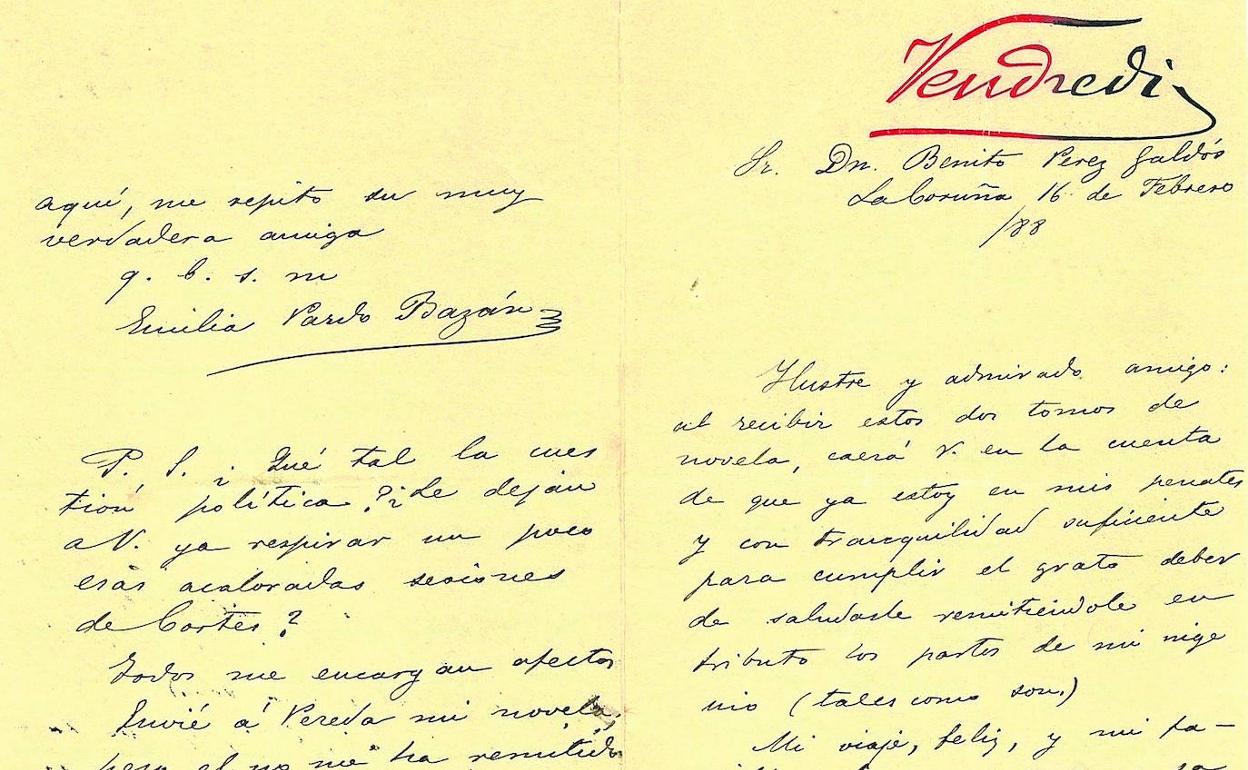 Vendredi
Sr. Dn. Benito Perez Galdós
La Coruña 16 de Febrero
/88
Ilustre y admirado amigo:
al recibir estos dos tomos de
novela, caerá V. en la cuenta
de que ya estoy en mis penates
y con tranquilidad suficiente
para cumplir el grato deber
de saludarle remitiéndole en
tributo los partos de mi inge
nio (tales como son.)
Mi viaje, feliz, y mi fa-
aquí, me repito su muy
verdadera amiga
q. b. s. m
Emilia Pardo Bazán
P. S. ¿Qué tal la cues
tión política? ¿Le dejan
a V. ya respirar un poco
esas acaloradas sesiones
de Cortes?
Todos me encargan afectos
Envié á Pereda mi novela,
pero él no me ha remitido